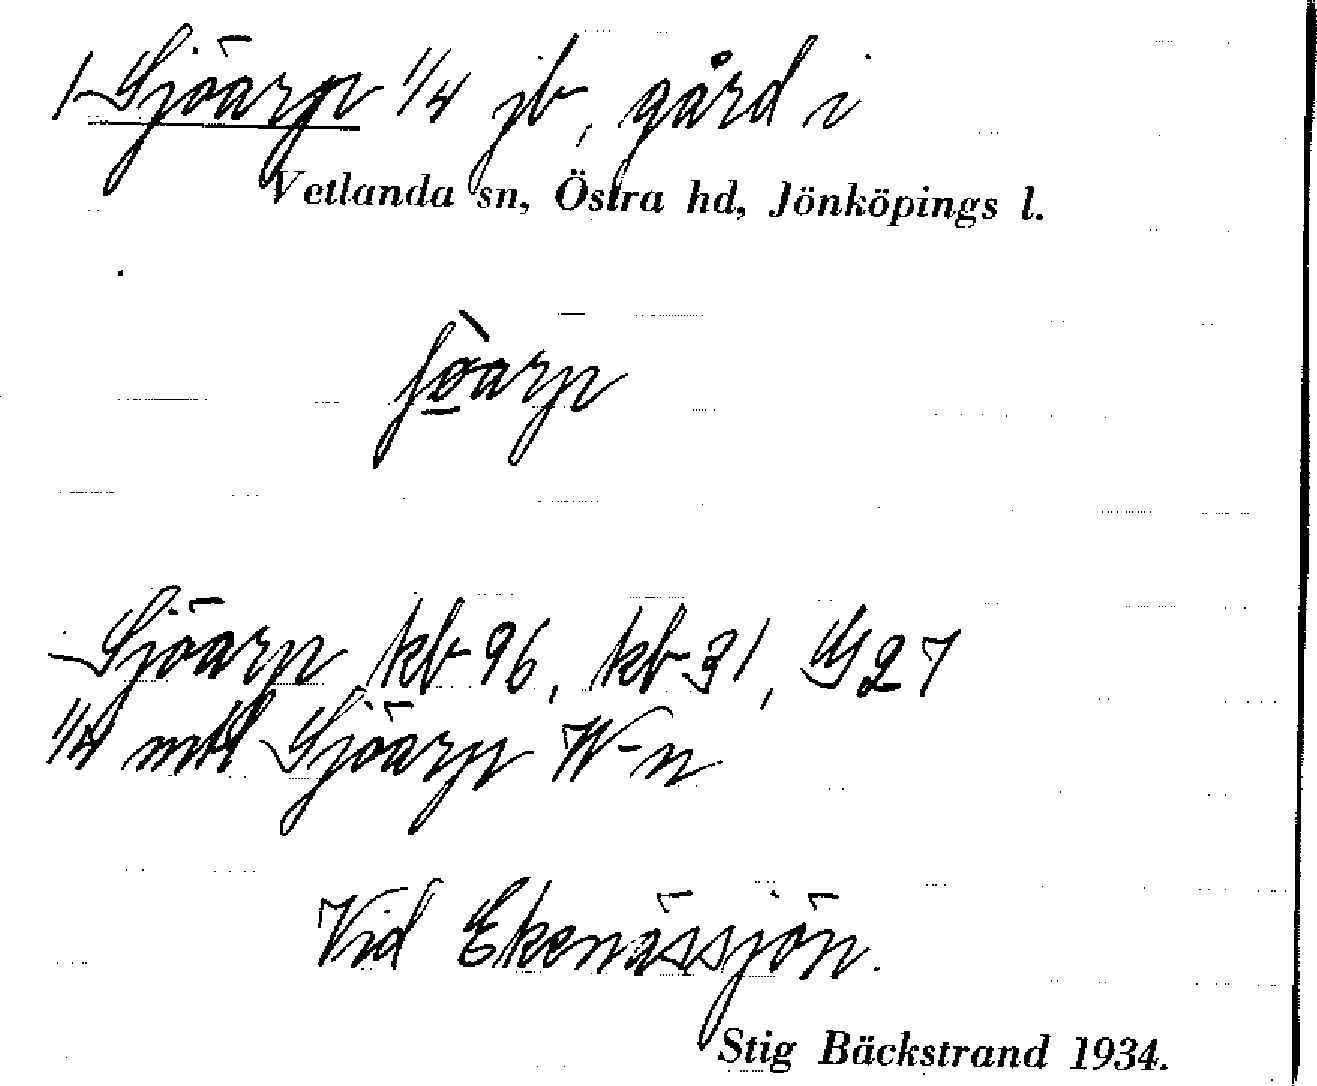 1 Sjöarp 1/4 jb, gård i
Vetlanda sn, Östra hd, Jönköpings l.
ʃö̀arp
Sjöarp kb 96, kb 31, GG 27
1/4 mtl Sjöarp W-n
Vid Ekenässjön.
Stig Bäckstrand 1934.